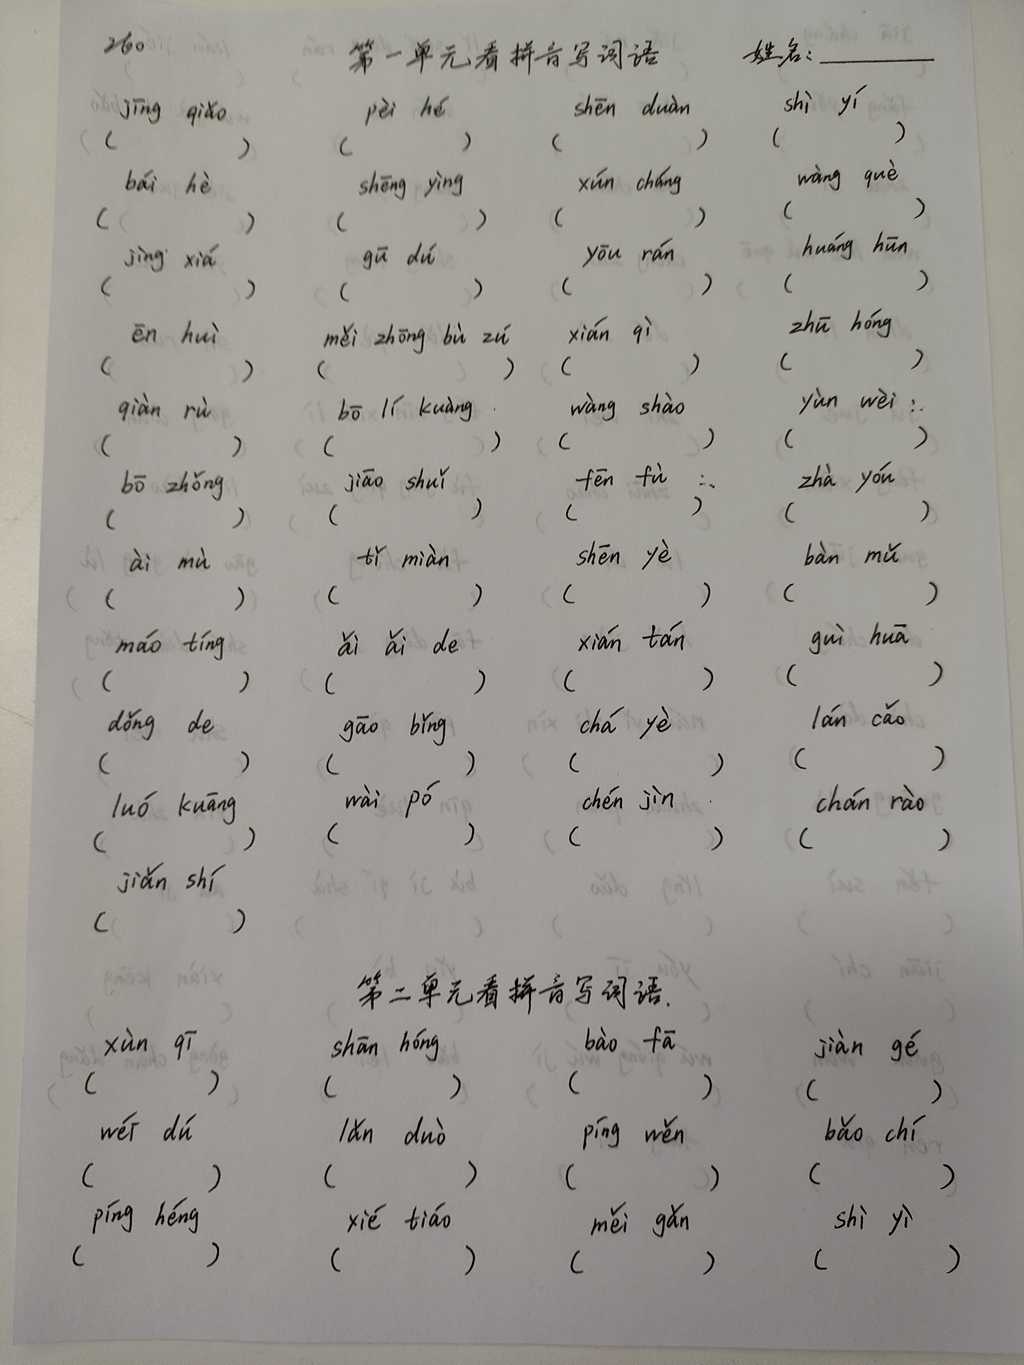 260 第一单元看拼音写词语 姓名：________
jīng qiǎo pèi hé shēn duàn shì yí
( ) ( ) ( ) ( )
bái hè shēng yìng xún cháng wàng què
( ) ( ) ( ) ( )
jìng xiá gū dú yōu rán huáng hūn
( ) ( ) ( ) ( )
ēn huì měi zhōng bù zú xián qì zhū hóng
( ) ( ) ( ) ( )
qiàn rù bō lí kuàng wàng shào yùn wèi
( ) ( ) ( ) ( )
bō zhǒng jiāo shuǐ fēn fù zhà yóu
( ) ( ) ( ) ( )
ài mù tǐ miàn shēn yè bàn mǔ
( ) ( ) ( ) ( )
máo tíng ǎi ǎi de xián tán guì huā
( ) ( ) ( ) ( )
dǒng de gāo bǐng chá yè lán cǎo
( ) ( ) ( ) ( )
luó kuāng wài pó chén jìn chán rào
( ) ( ) ( ) ( )
jiǎn shí
( )
第二单元看拼音写词语.
xùn qī shān hóng bào fā jiàn gé
( ) ( ) ( ) ( )
wéi dú lǎn duò píng wěn bǎo chí
( ) ( ) ( ) ( )
píng héng xié tiáo měi gǎn shì yì
( ) ( ) ( ) ( )